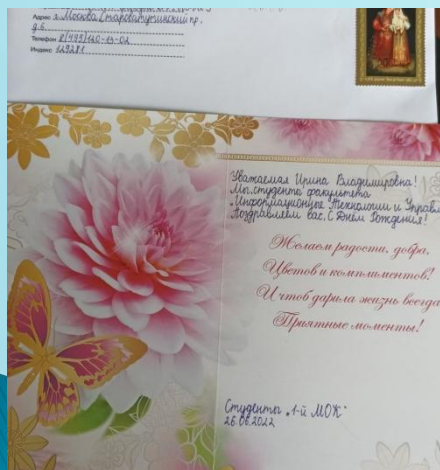 Адрес г. Москва Староватутинский пр.
д.6
Телефон 8(499)120-14-02
Индекс 129281
Уважаемая Ирина Владимировна!
Мы, студенты факультета
„Информационные Технологии и Управл
Поздравляем вас, С Днём Рождения!
Желаем радости, добра,
Цветов и комплиментов!
И чтоб дарила жизнь всегда
Приятные моменты!
Студенты „1-й МОК"
26.06.2022